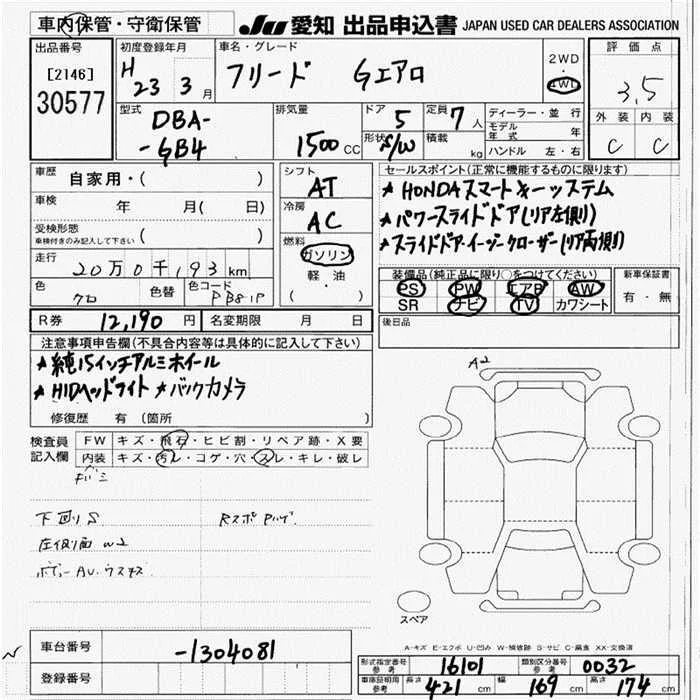 車内保管・守衛保管 JU 愛知 出品申込書 JAPAN USED CAR DEALERS ASSOCIATION
出品番号 初度登録年月 車名・グレード 評価点
[2146] H 23 3月 フリード Gエアロ 2WD・4WD 3.5
30577 型式 排気量 ドア 定員 ディーラー・並行 外装 内装
DBA- 1500cc 5 7人 モデル年式 年 C C
-GB4 形状 S/W 積載 kg ハンドル 左・右
車歴 自家用・( ) シフト AT セールスポイント(正常に機能するものに限ります)
車検 年 月( 日) 冷房 AC ★HONDAスマートキーシステム
受検形態 ( ) ★パワースライドドア(リア左側)
車検付きのみ記入して下さい 燃料 ガソリン ★スライドドア・イージークローザー(リア両側)
走行 20万0千193km 軽・油 装備品(純正品に限り○をつけてください) 新車保証書
色 クロ 色替 色コード PB81P ( ) PS PW エアB AW 有・無
SR ナビ TV カワシート
R券 12,190円 名変期限 月 日 後日品
注意事項申告欄(不具合内容等は具体的に記入して下さい)
★純15インチアルミホイール
★HIDヘッドライト ★バックカメラ
修復歴 有(箇所 )
A2
検査員 FW キズ・飛石・ヒビ割・リペア跡・X要
記入欄 内装 キズ・汚レ・コゲ・穴・スレ・キレ・破レ
下回りS
左リア W2
スペア
A-キズ E-エクボ U-凹み W-補修跡 S-サビ C-腐食 XX-交換済
車台番号 -1304081
登録番号
形式指定番号 参考 16101 類別区分番号 参考 0032
車庫証明用 参考 長さ 421cm 幅 169cm 高さ 174cm